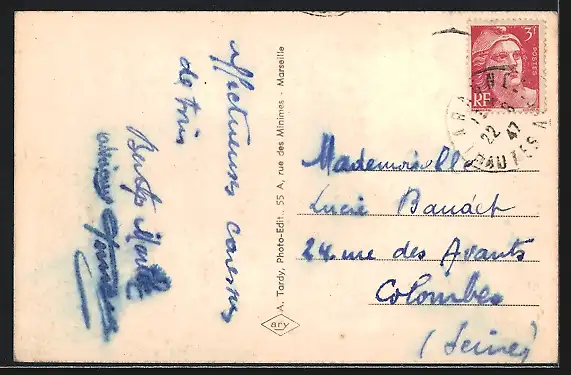 affectueuses caresses
de tous
A. Tardy, Photo-Edit., 55 A, rue des Minimes - Marseille
ary
3F
POSTES
RF
22
47
HAUTES A
Mademoiselle
Lucie Baudet
24 rue des Avants
Colombes
(Seine)